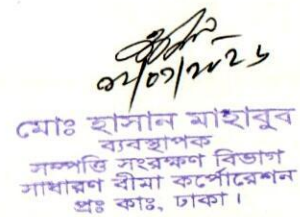 ১২/০১/২০২৬
মোঃ হাসান মাহাবুব
ব্যবস্থাপক
সম্পত্তি সংরক্ষণ বিভাগ
সাধারণ বীমা কর্পোরেশন
প্রঃ কাঃ, ঢাকা।